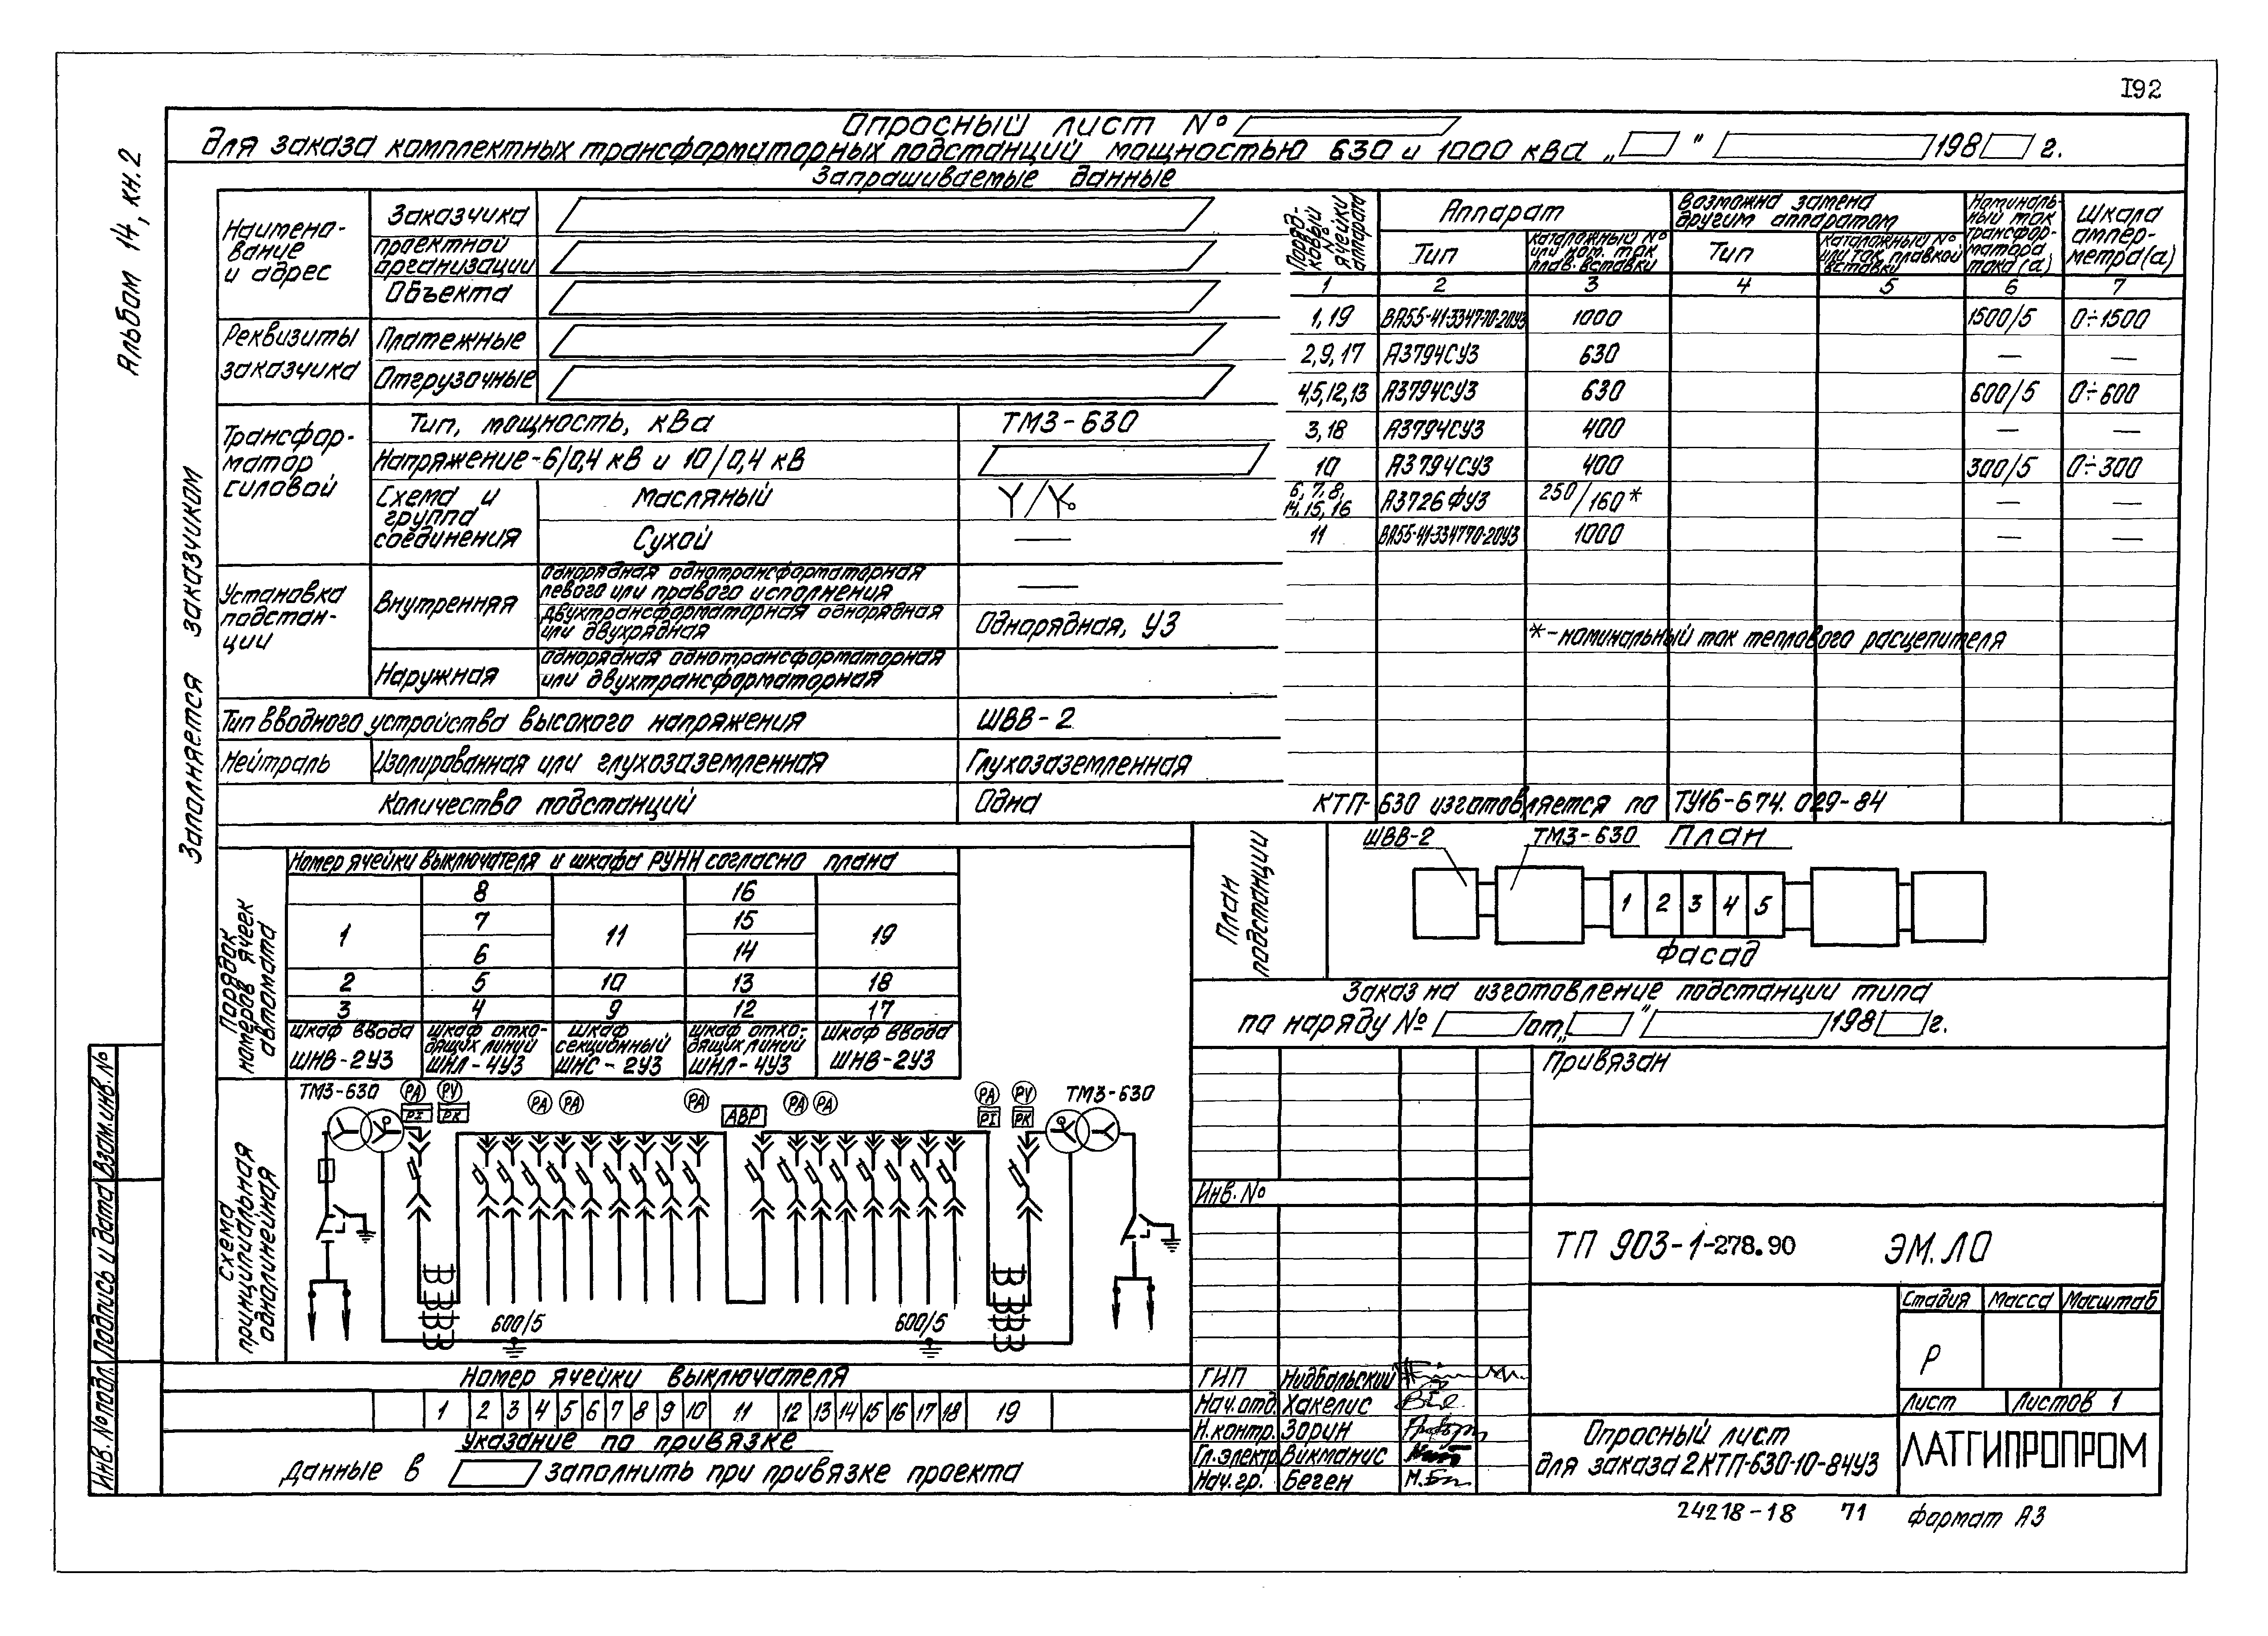 192
Альбом 14, кн.2
Опросный лист №
для заказа комплектных трансформаторных подстанций мощностью 630 и 1000 ква „ " 198 г.
Запрашиваемые данные
Заполняется заказчиком
Наимено-
вание
и адрес
Заказчика
Проектной
организации
Объекта
Реквизиты
заказчика
Платежные
Отгрузочные
Трансфор-
матор
силовой
Тип, мощность, ква
ТМЗ-630
Напряжение-6/0,4 кв и 10/0,4 кв
Схема и
группа
соединения
Масляный
Y/Y
Сухой
—
Установка
подстан-
ции
Внутренняя
однорядная однотрансформаторная
левого или правого исполнения
—
двухтрансформаторная однорядная
или двухрядная
Однорядная, У3
Наружная
однорядная однотрансформаторная
или двухтрансформаторная
Тип вводного устройства высокого напряжения
ШВВ-2
Нейтраль
Изолированная или глухозаземленная
Глухозаземленная
Количество подстанций
Одна
Поряд-
ковый
№
ячейки
аппарата
Аппарат
Возможна замена
другим аппаратом
Номиналь-
ный ток
трансфор-
матора
тока (а)
Шкала
ампер-
метра(а)
Тип
каталожный №
или ном. ток
плав. вставки
Тип
каталожный №
или ток плавкой
вставки
1 2 3 4 5 6 7
1, 19 ВА55-41-334770-20У3 1000 1500/5 0÷1500
2,9,17 А3794СУ3 630 — —
4,5,12,13 А3794СУ3 630 600/5 0÷600
3,18 А3794СУ3 400 — —
10 А3794СУ3 400 300/5 0÷300
6, 7, 8,
14, 15, 16 А3726ФУ3 250/160* — —
11 ВА55-41-334770-20У3 1000 — —
*-номинальный ток теплового расцепителя
КТП-630 изготовляется по ТУ16-674.029-84
Порядок
номеров ячеек
автомата
Номер ячейки выключателя и шкафа РУНН согласно плана
8 16
1 7 11 15 19
6 14
2 5 10 13 18
3 4 9 12 17
шкаф ввода
ШНВ-2У3
шкаф отхо-
дящих линий
ШНЛ-4У3
шкаф
секционный
ШНС-2У3
шкаф отхо-
дящих линий
ШНЛ-4У3
шкаф ввода
ШНВ-2У3
План
подстанции
ШВВ-2 ТМЗ-630 План
1 2 3 4 5
Фасад
Заказ на изготовление подстанции типа
по наряду № от „ " 198 г.
схема
принципиальная
однолинейная
ТМЗ-630 PA PV PA PA PA PA PA PA PV ТМЗ-630
PI PK АВР PI PK
600/5 600/5
Номер ячейки выключателя
1 2 3 4 5 6 7 8 9 10 11 12 13 14 15 16 17 18 19
указание по привязке
Данные в заполнить при привязке проекта
Взам.инв.№
Подпись и дата
Инв.№подл.
Привязан
Инв.№
ТП 903-1-278.90 ЭМ.ЛО
Стадия Масса Масштаб
Р
Лист Листов 1
ГИП Нидбальский
Нач.отд. Хакелис
Н.контр. Зорин
Гл.электр. Викманис
Нач.гр. Беген
Опросный лист
для заказа 2КТП-630-10-84У3
ЛАТГИПРОПРОМ
24218-18 71 Формат А3